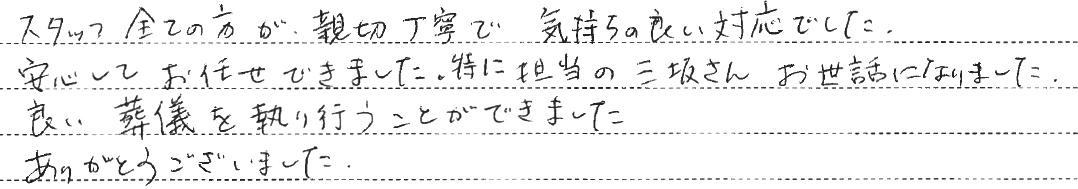 スタッフ全ての方が、親切丁寧で 気持ちの良い対応でした。
安心して お任せできました。特に担当の三坂さん お世話になりました。
良い 葬儀を執り行うことができました
ありがとうございました。